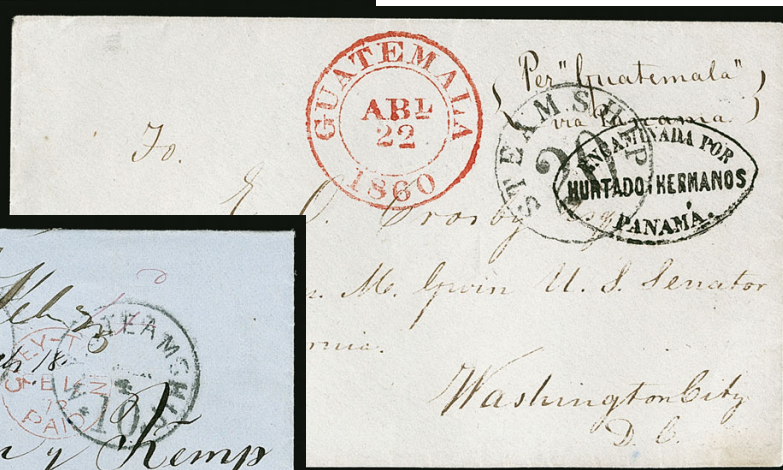 GUATEMALA
ABL
22
1860
Per "Guatemala"
via Panama
STEAMSHIP
20
ENCAMINADA POR
HURTADO Y HERMANOS
PANAMÁ.
To.
Crosby
Mc. Gwin U. S. Senator
Washington City
D. C.
STEAMSHIP
10
PAID
y Kemp